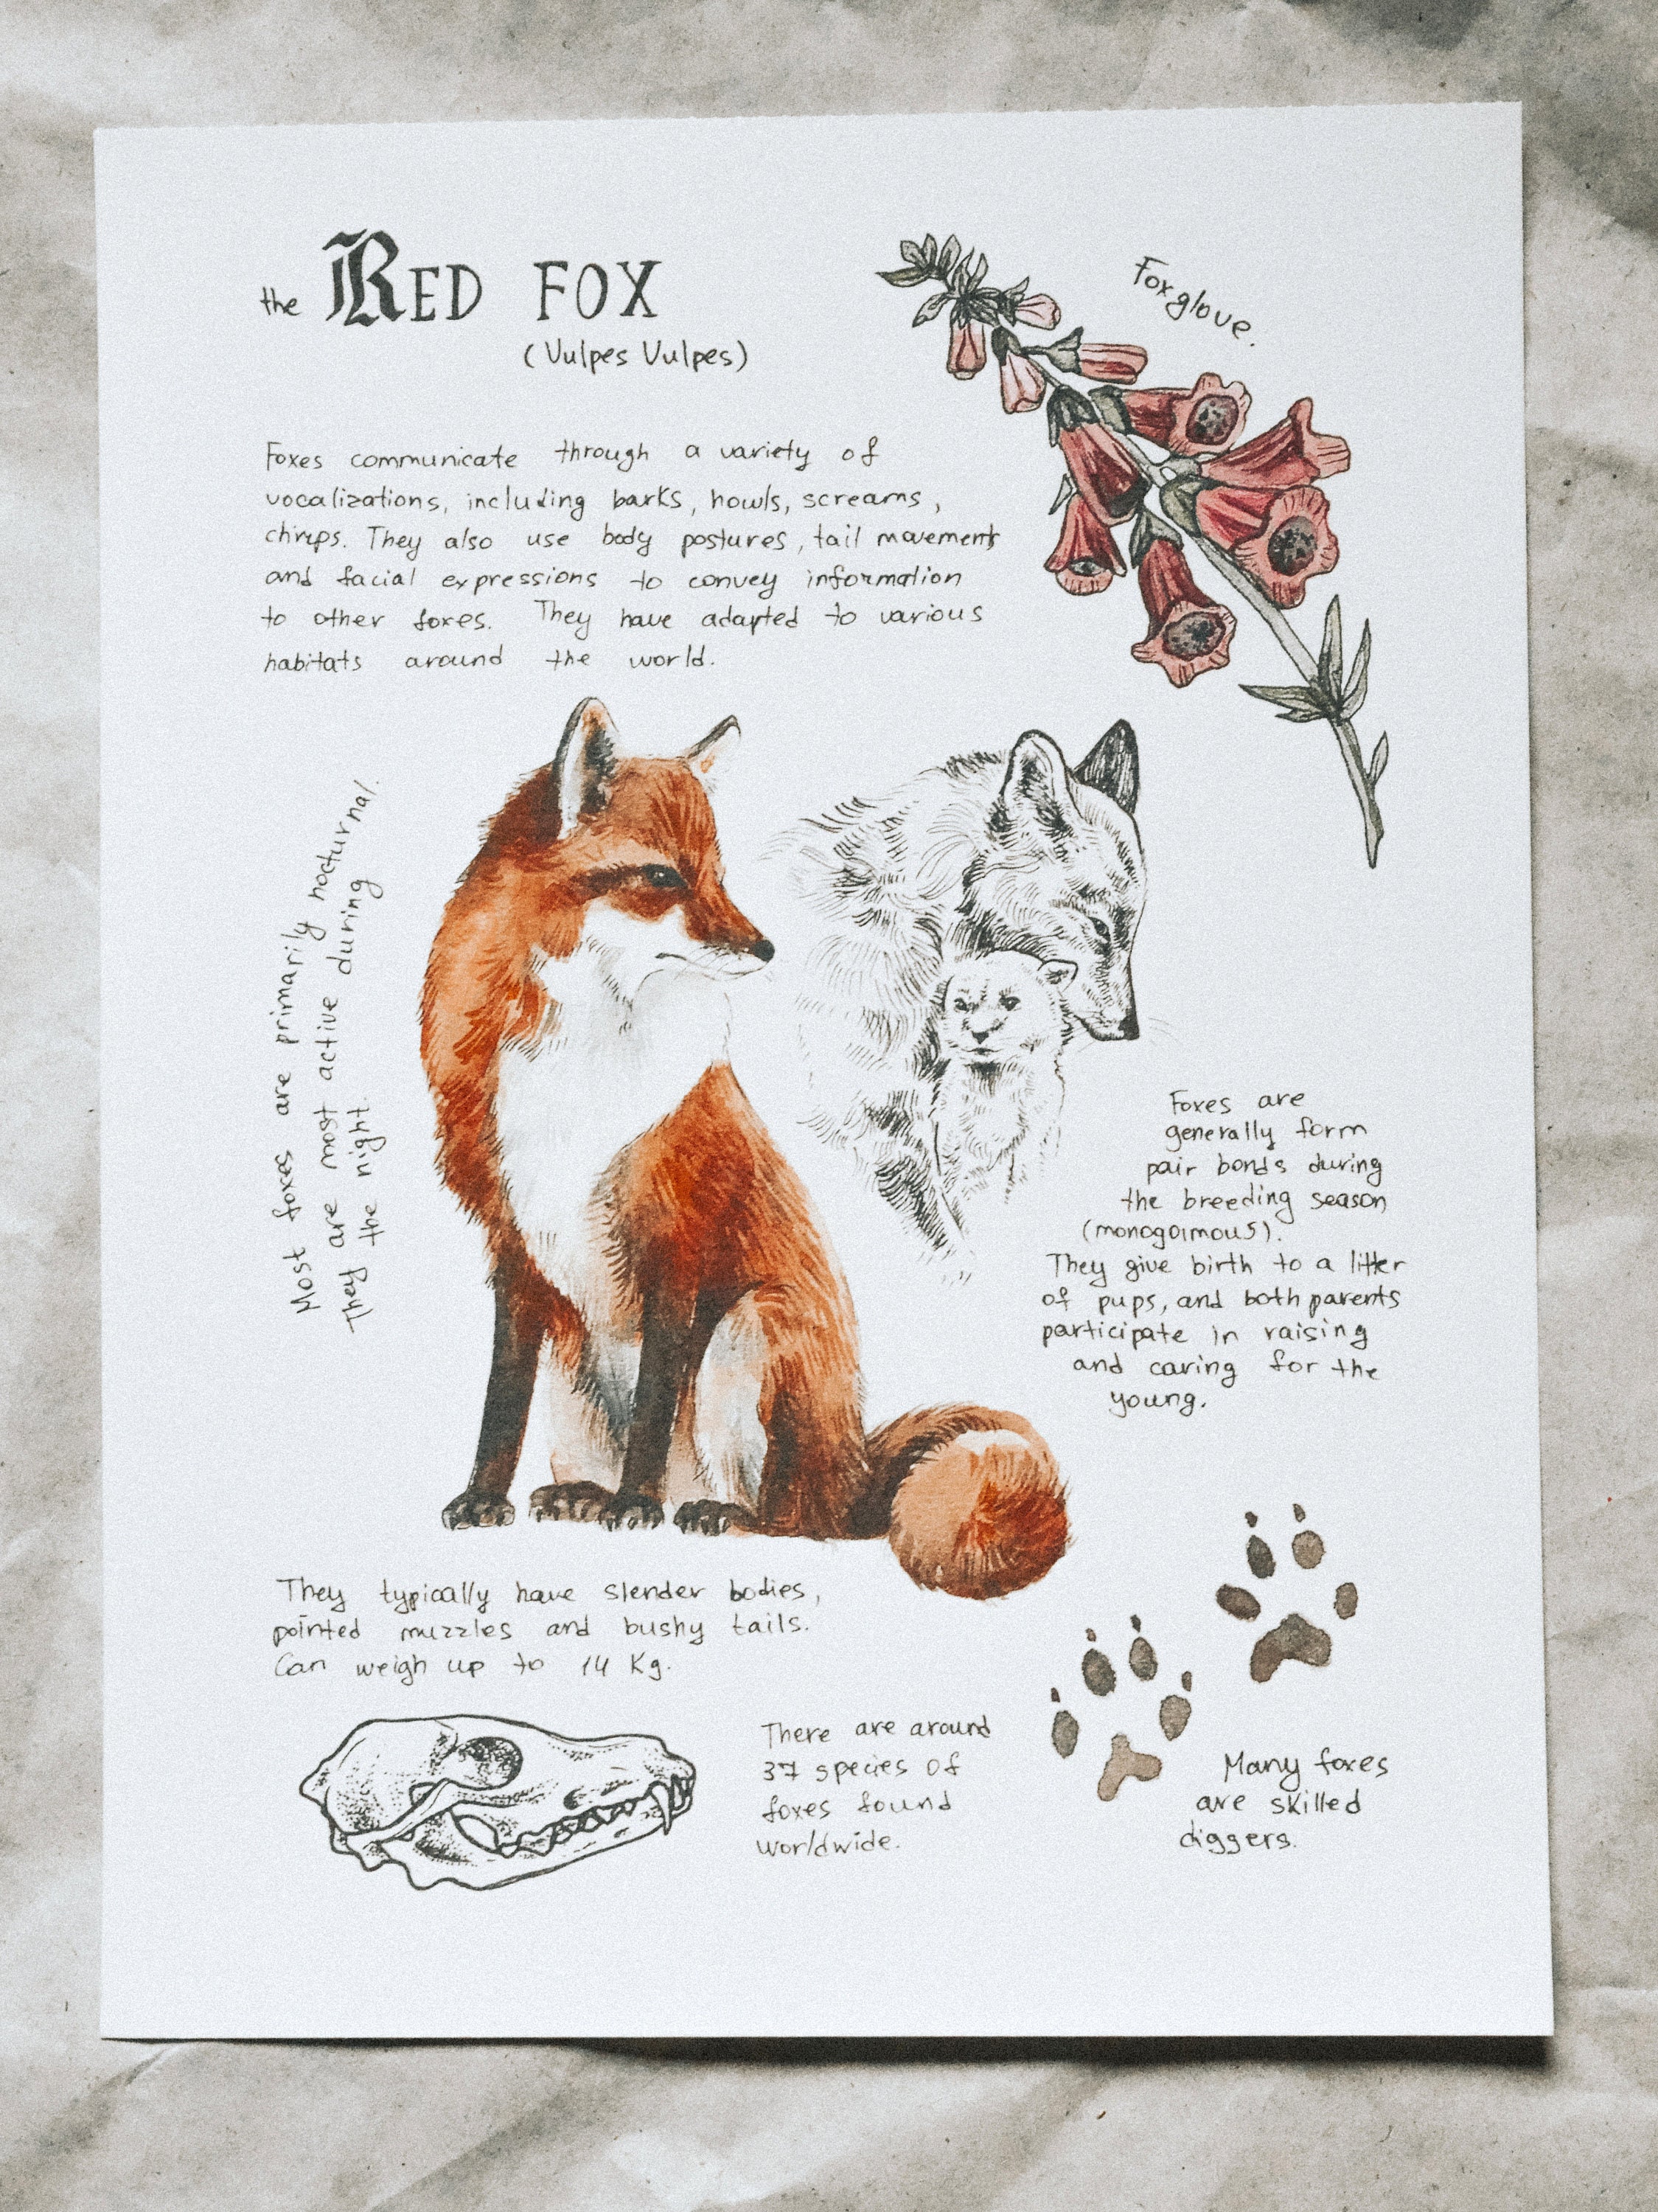 the RED FOX
(Vulpes Vulpes)
Foxglove.
Foxes communicate through a variety of
vocalizations, including barks, howls, screams,
chirps. They also use body postures, tail movements
and facial expressions to convey information
to other foxes. They have adapted to various
habitats around the world.
Most foxes are primarily nocturnal.
They are most active during
the night.
Foxes are
generally form
pair bonds during
the breeding season
(monogoimous).
They give birth to a litter
of pups, and both parents
participate in raising
and caring for the
young.
They typically have slender bodies,
pointed muzzles and bushy tails.
Can weigh up to 14 Kg.
There are around
37 species of
foxes found
worldwide.
Many foxes
are skilled
diggers.